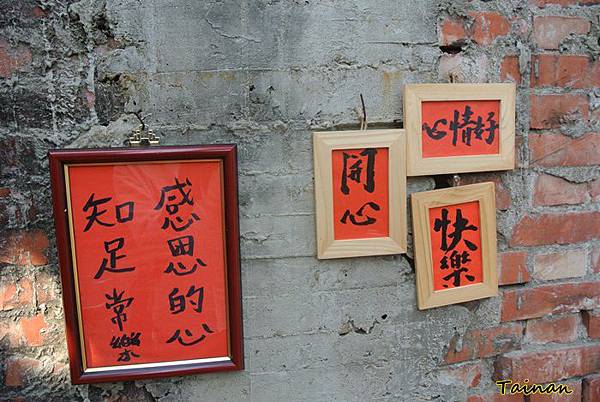 感恩的心
知足常樂
開心
心情好
快樂
Tainan